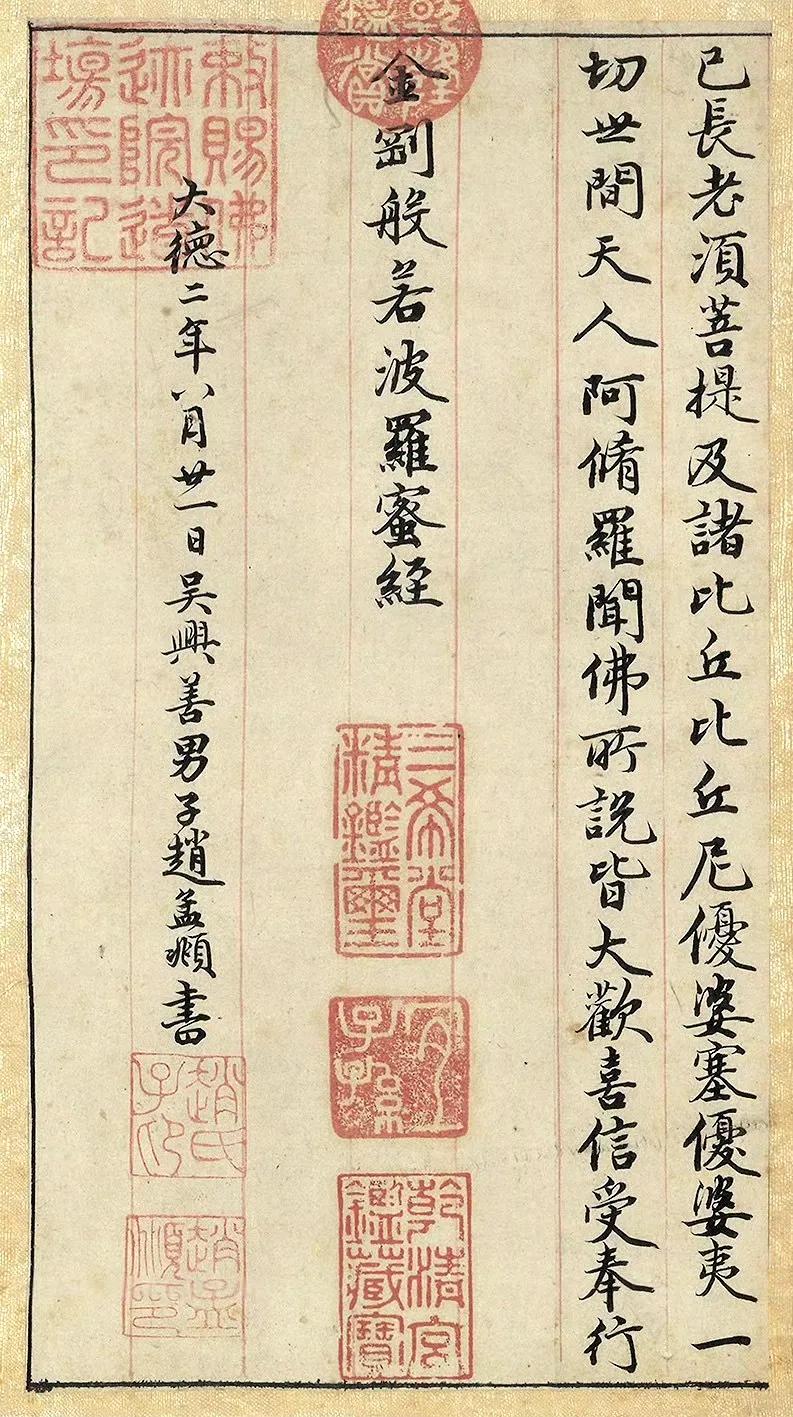 已長老須菩提及諸比丘比丘尼優婆塞優婆夷一
切世間天人阿脩羅聞佛所說皆大歡喜信受奉行
金剛般若波羅蜜經
大德二年八月廿一日吴興善男子趙孟頫書
乾隆鑑賞
三希堂精鑑璽
宜子孫
乾清宮鑑藏寶
敕賜佛迹院造塲印記
趙氏子印
趙孟頫印